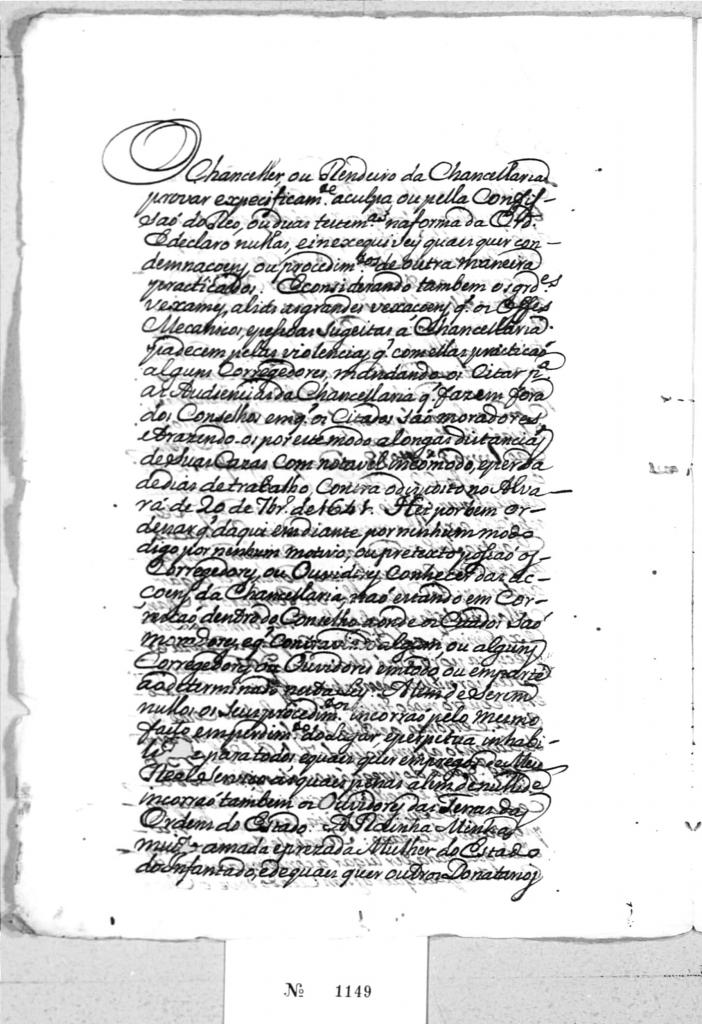 O Chanceller ou Rendeiro da Chancellaria
provar expecificam.te a culpa ou pella Confis-
saõ do Reo, ou duas testem.as na forma da Ord.
E declaro nullas, e inexequiveis quais quer con-
demnaçoens, ou procedim.tos de outra maneira
practicados. E considerando tambem os gr.des
vexames, a lidas grandes vexaçoens q. os Off.es
Mecanicos, e pessoas sugeitas á Chancellaria
padecem pellas violencias q. com ellas practicaõ
alguns Corregedores, mandando os Citar p.a
as Audiencias da Chancellaria q. fazem fora
dos Conselhos em q. os Citados saõ moradores
e trazendo-os por este modo a longas distancias
de suas Cazas com notavel incomodo, e perda
de dias de trabalho, Contra o disposto no Alva-
rá de 20 de 7br. de Hei por bem or-
denar q. daqui em diante por ninhum modo
digo por ninhum motivo, ou pretexto possaõ os
Corregedores, ou Ouvidores Conhecer das ac-
coens da Chancellaria, naõ estando em Cor-
reiçaõ dentro do Conselho aonde os Citados saõ
moradores, e q. contravindo algum ou alguns
Corregedores ou Ouvidores em todo, ou em parte
ao determinado nesta Ley. Alem de serem
nullos os seus procedim.tos incorraõ pelo mesmo
facto em perdim.to do lugar, e perpetua inhabi-
para todos e quais quer empregos de Meu
Real Serviço as quais penas alem de nullid.e
incorraõ tambem os Ouvidores das Terras da
Ordem do Estado. A Rainha Minha
mui.to amada e prezada Mulher do Estado
do Infantado, e de quais quer outros Donatarios
Nº 1149